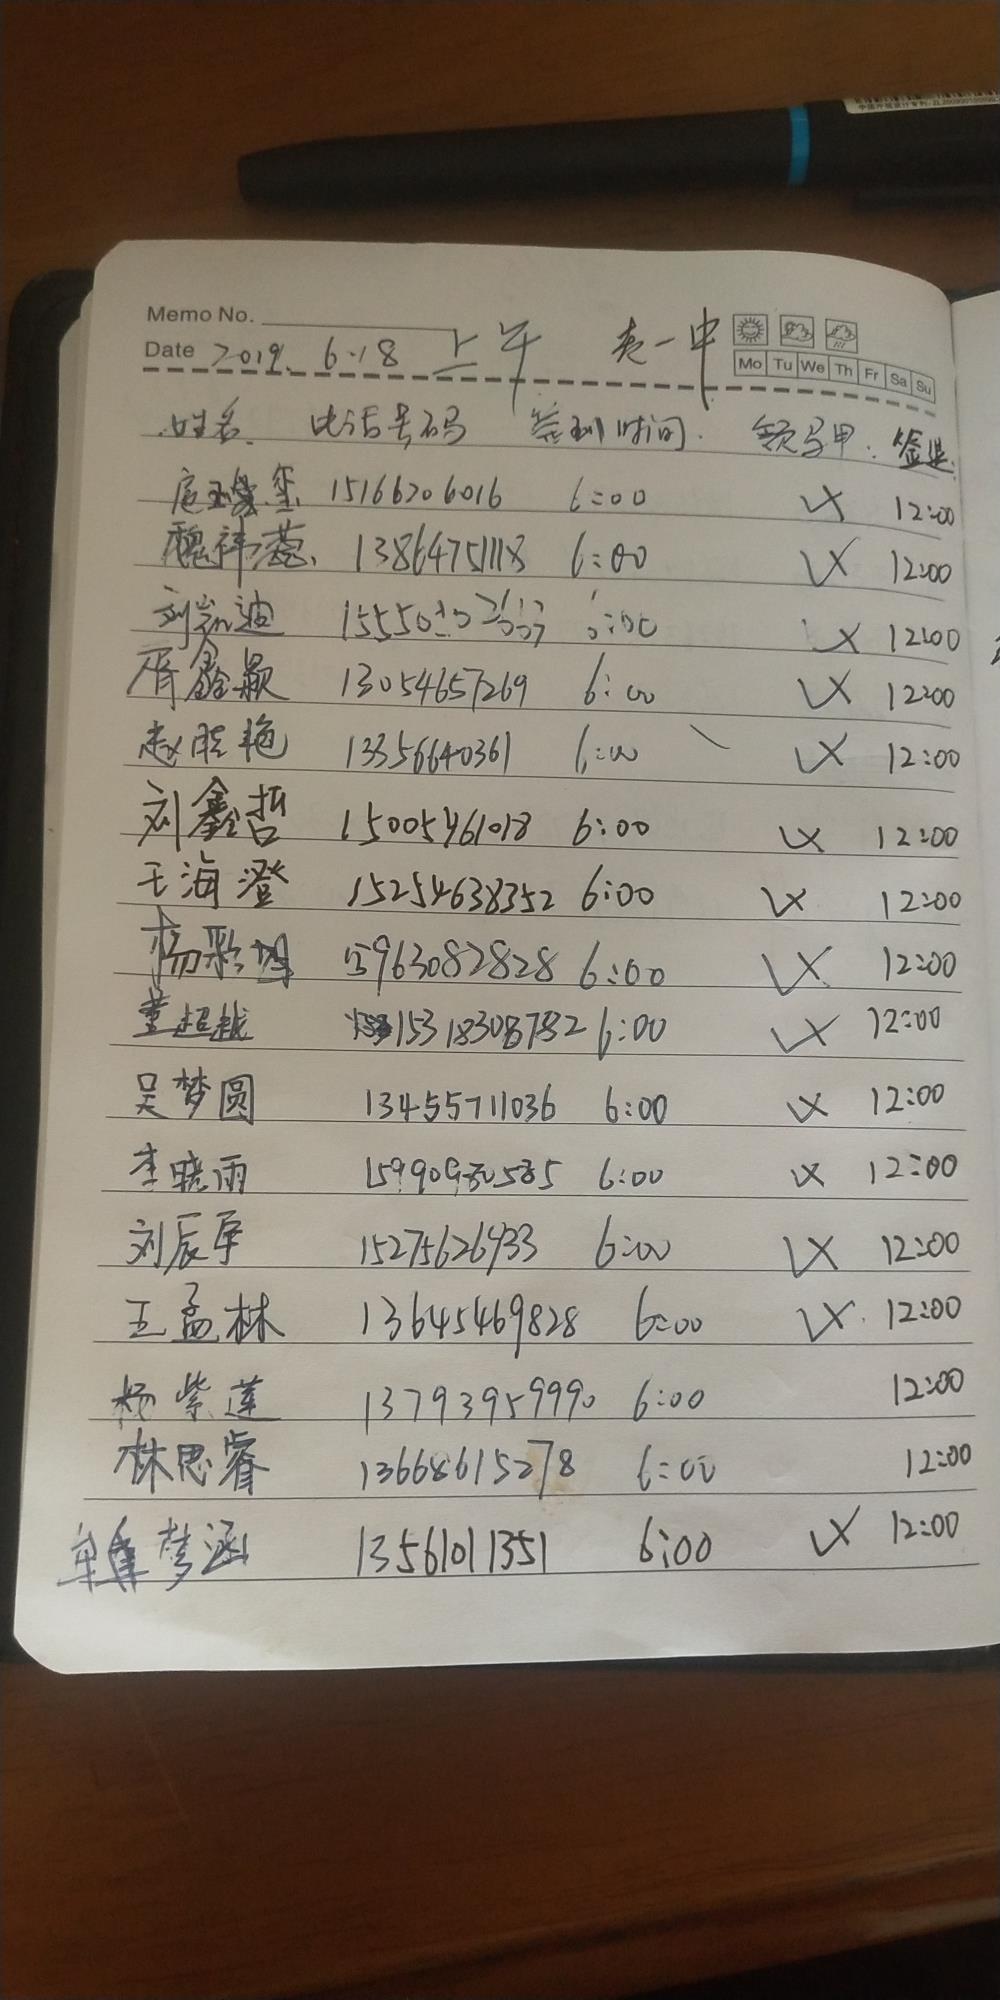 中国外观设计专利:
Memo No.
Date 2019. 6.18 上午 一中
Mo Tu We Th Fr Sa Su
姓名 电话号码 签到时间 领马甲 签退
15166206016 6:00 √× 12:00
魏祎蕊 13864751118 6:00 √× 12:00
刘凯迪 √× 12:00
胥鑫颖 13054657269 6:00 √× 12:00
赵胜艳 13356640361 6:00 √× 12:00
刘鑫哲 15005461018 6:00 √× 12:00
王海澄 15254638352 6:00 √× 12:00
杨彩 15963082828 6:00 √× 12:00
董超越 15318308782 6:00 √× 12:00
吴梦圆 13455711036 6:00 √× 12:00
李晓雨 6:00 √× 12:00
刘辰军 15275626933 6:00 √× 12:00
王孟林 13645469828 6:00 √× 12:00
杨紫莲 13793959990 6:00 12:00
林思睿 13668615278 6:00 12:00
梦涵 13561011351 6:00 √× 12:00